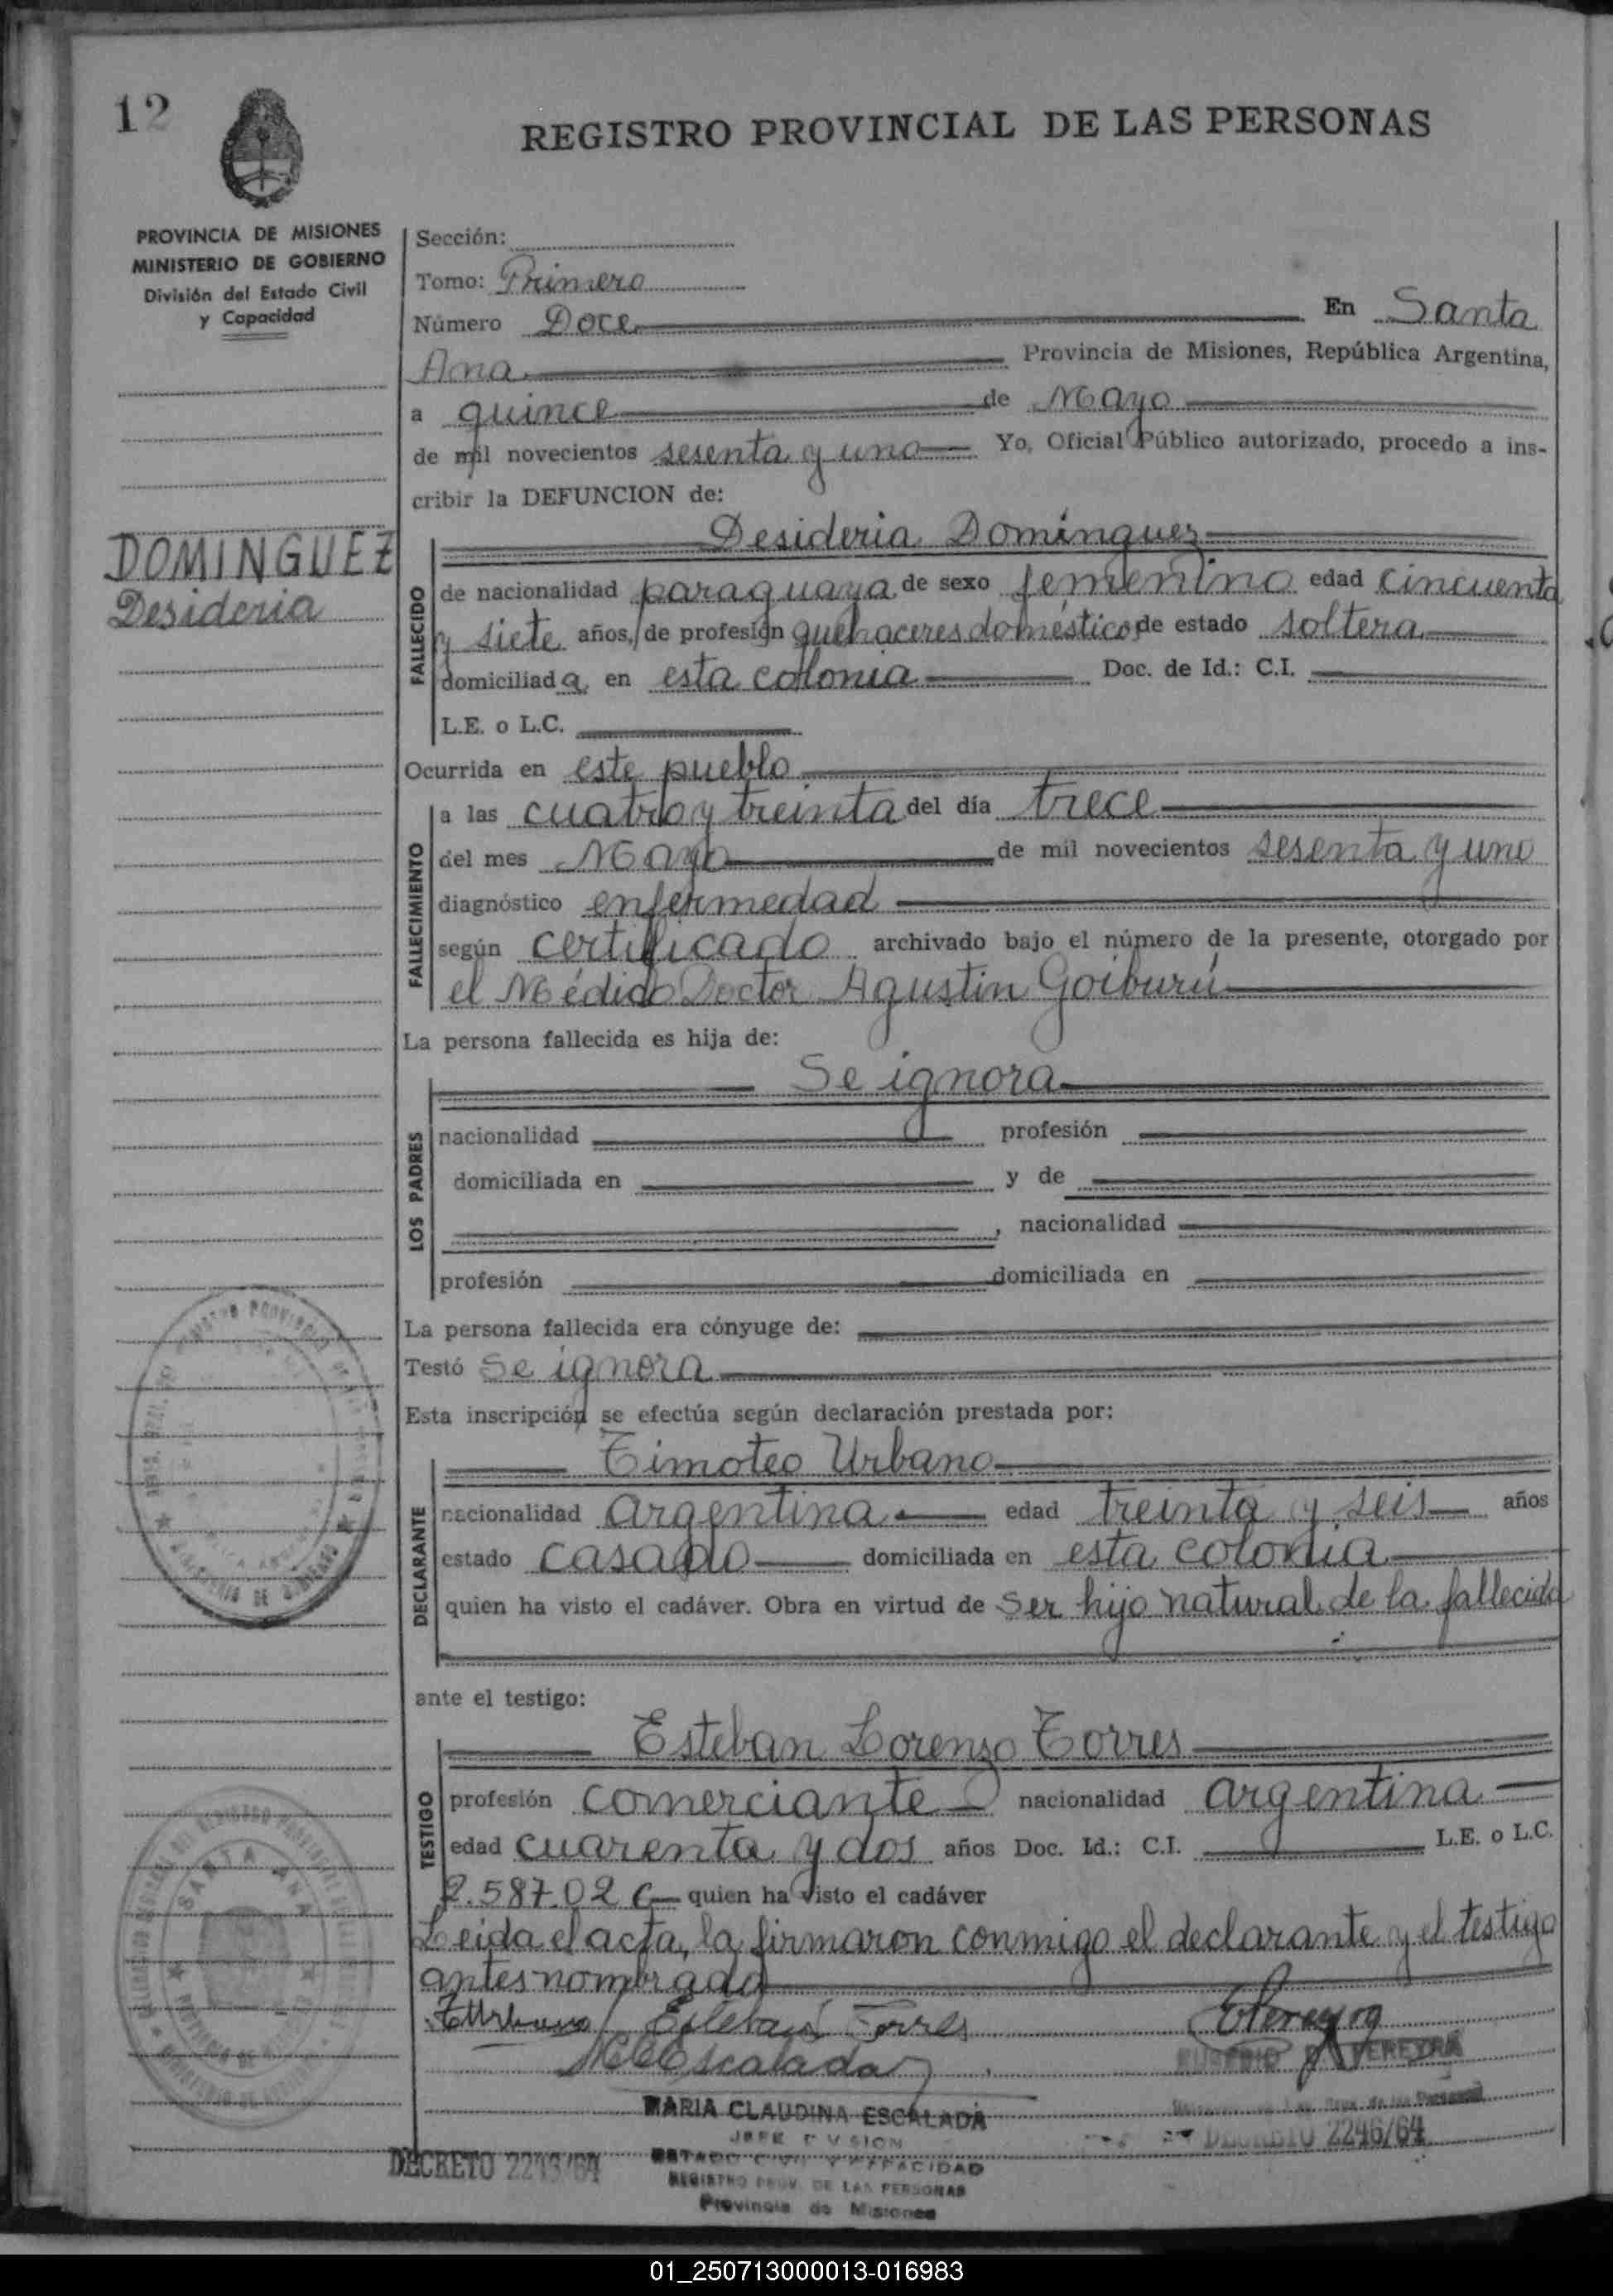 12
REGISTRO PROVINCIAL DE LAS PERSONAS
PROVINCIA DE MISIONES
MINISTERIO DE GOBIERNO
División del Estado Civil
y Capacidad
Sección:
Tomo: Primero
Número Doce En Santa
Ana Provincia de Misiones, República Argentina,
a quince de Mayo
de mil novecientos sesenta y uno Yo, Oficial Público autorizado, procedo a ins-
cribir la DEFUNCION de:
DOMINGUEZ
Desideria
FALLECIDO
Desideria Domínguez
de nacionalidad paraguaya de sexo femenino edad cincuenta
y siete años, de profesión quehaceres domésticos de estado soltera
domiciliada en esta colonia Doc. de Id.: C.I.
L.E. o L.C.
Ocurrida en este pueblo
FALLECIMIENTO
a las cuatro y treinta del día trece
del mes Mayo de mil novecientos sesenta y uno
diagnóstico enfermedad
según certificado archivado bajo el número de la presente, otorgado por
el Médido Doctor Agustin Goiburú
La persona fallecida es hija de:
LOS PADRES
Se ignora
nacionalidad profesión
domiciliada en y de
, nacionalidad
profesión domiciliada en
La persona fallecida era cónyuge de:
Testó Se ignora
Esta inscripción se efectúa según declaración prestada por:
DECLARANTE
Timoteo Urbano
nacionalidad argentina edad treinta y seis años
estado casado domiciliada en esta colonia
quien ha visto el cadáver. Obra en virtud de Ser hijo natural de la fallecida
ante el testigo:
TESTIGO
Esteban Lorenzo Torres
profesión comerciante nacionalidad argentina
edad cuarenta y dos años Doc. Id.: C.I. L.E. o L.C.
2.587.026 quien ha visto el cadáver
Leida el acta, la firmaron conmigo el declarante y el testigo
antes nombrado
TUrbano Esteban Torres EPereyra
MCEscalada
EUSEBIO PEREYRA
MARIA CLAUDINA ESCALADA
JEFE DIVISION
ESTADO CIVIL Y CAPACIDAD
REGISTRO PROV. DE LAS PERSONAS
Provincia de Misiones
DECRETO 2246/64
DECRETO 2246/64
SANTA ANA
01_250713000013-016983